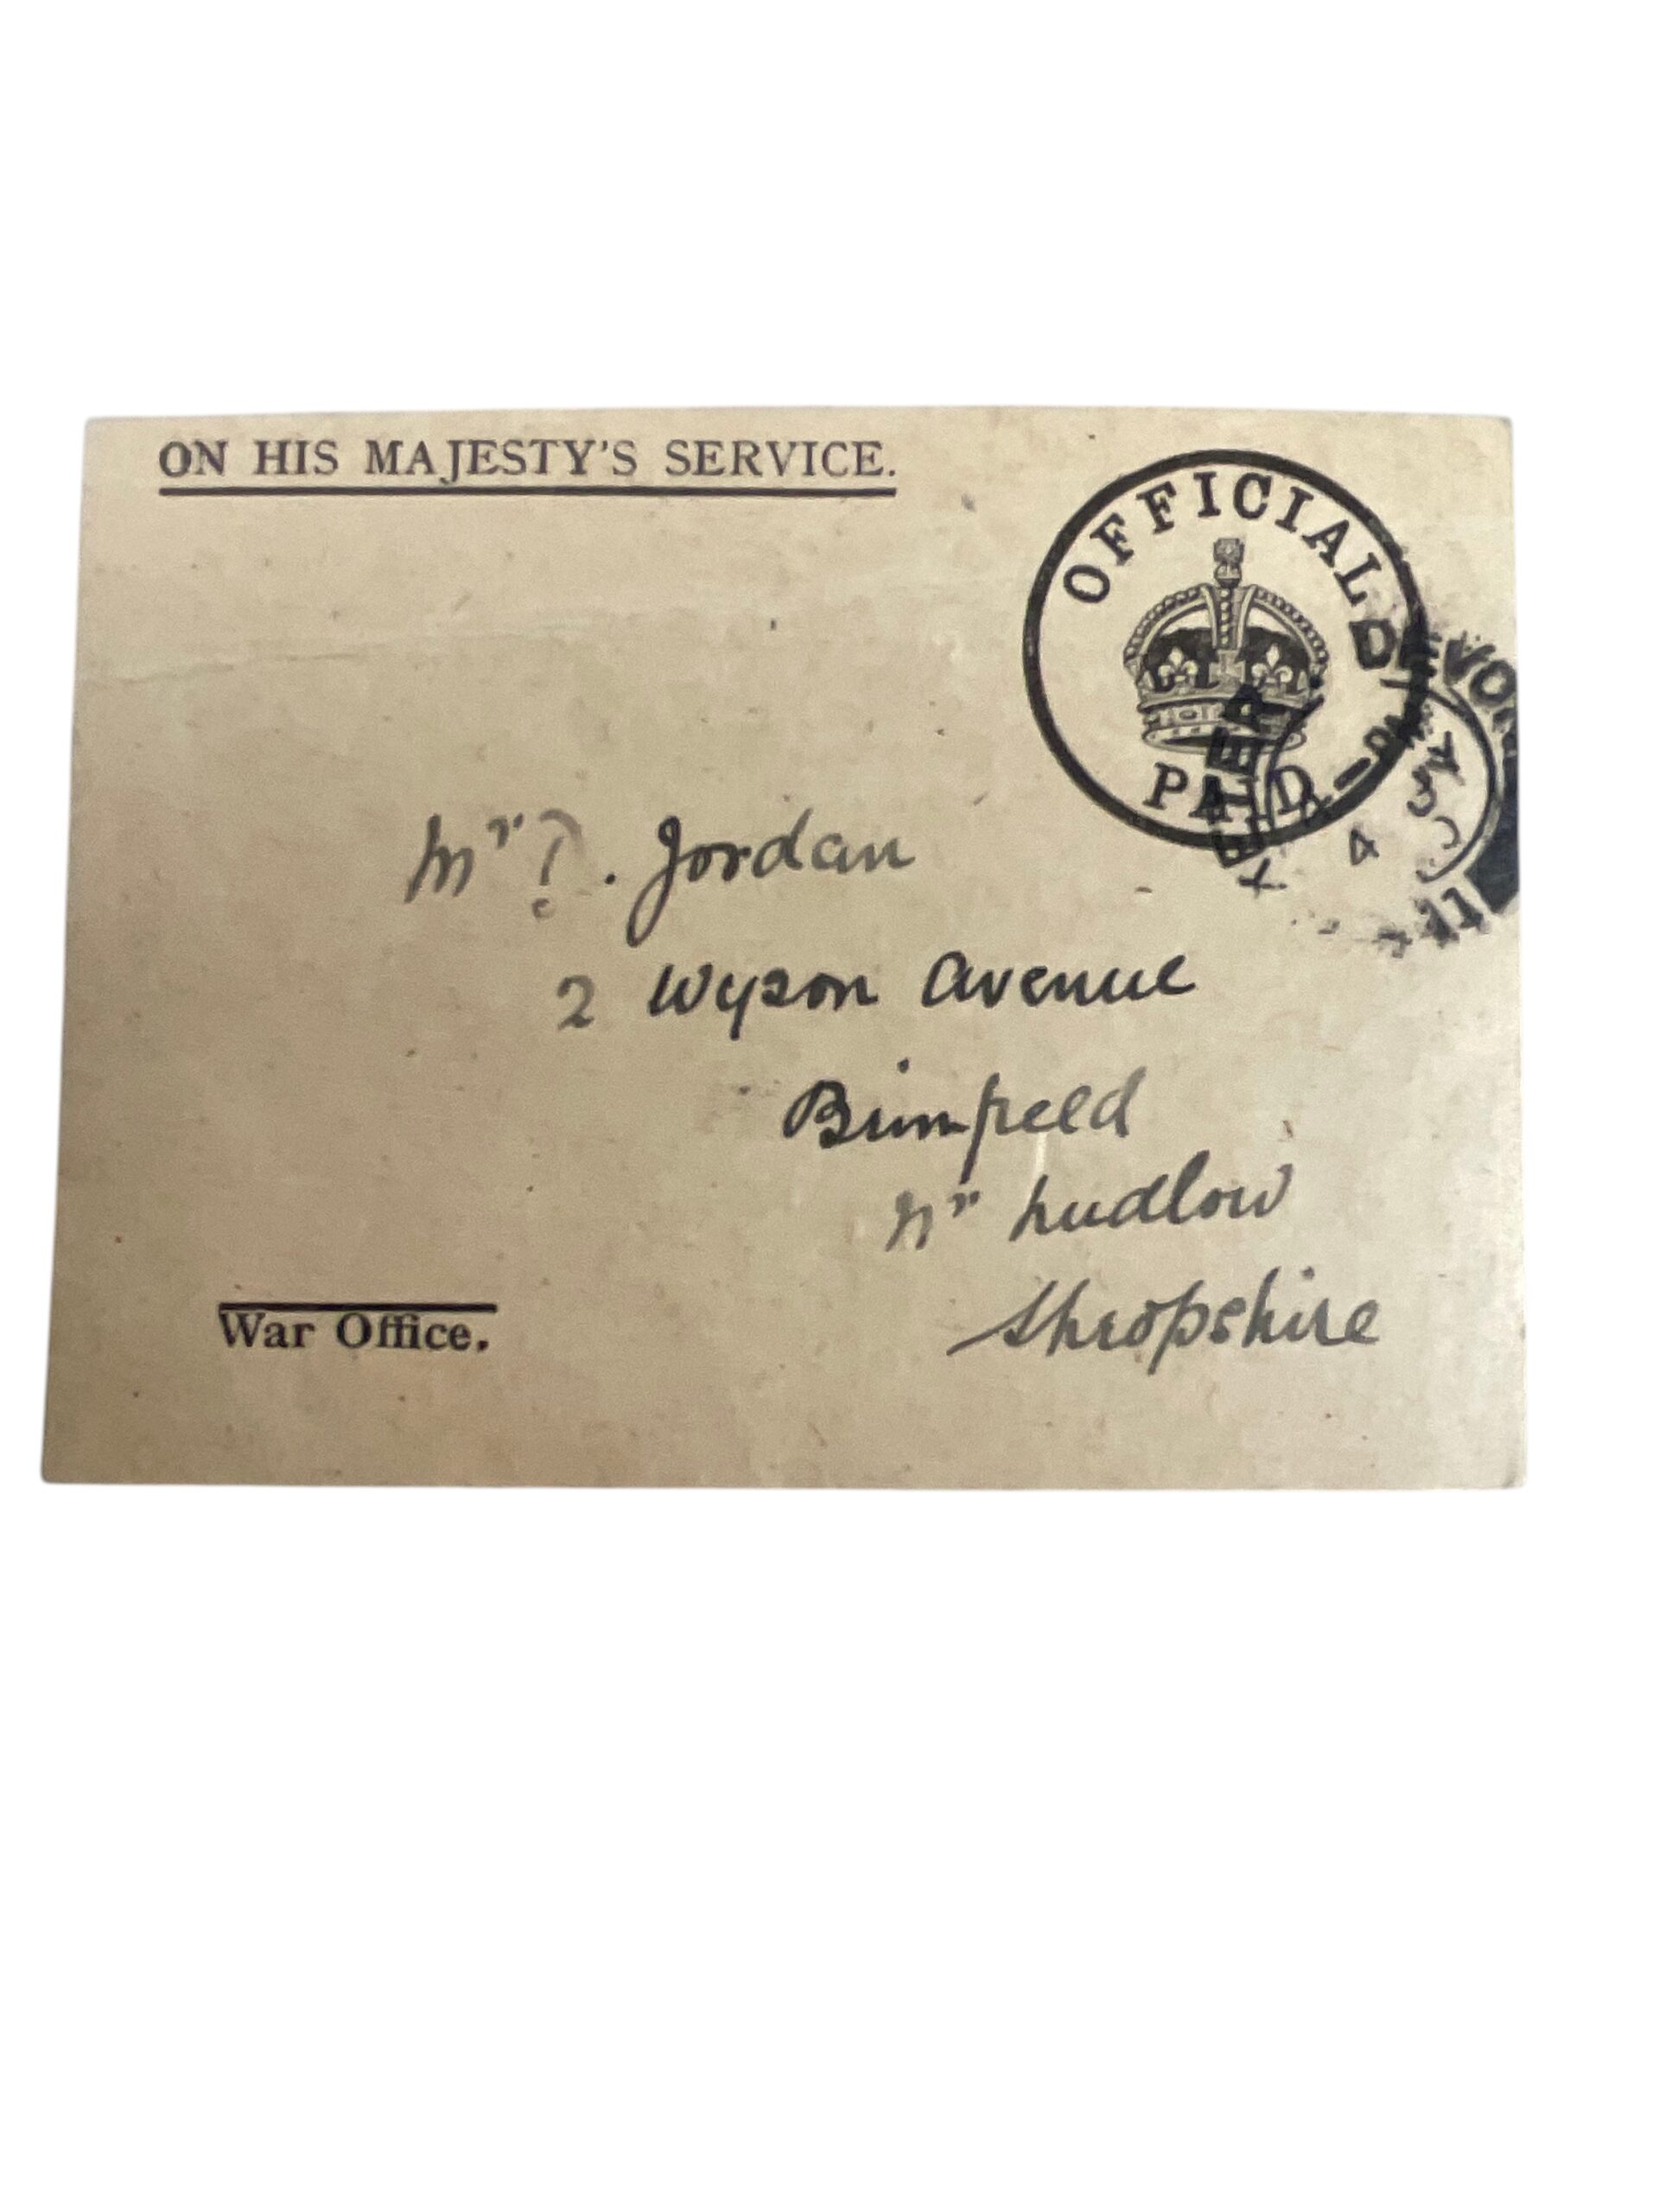 ON HIS MAJESTY'S SERVICE.
OFFICIAL
PAID
EXETER DEVON
4
11
Mr ?. Jordan
2 Wyson Avenue
Brimfield
Nr Ludlow
Shropshire
War Office.